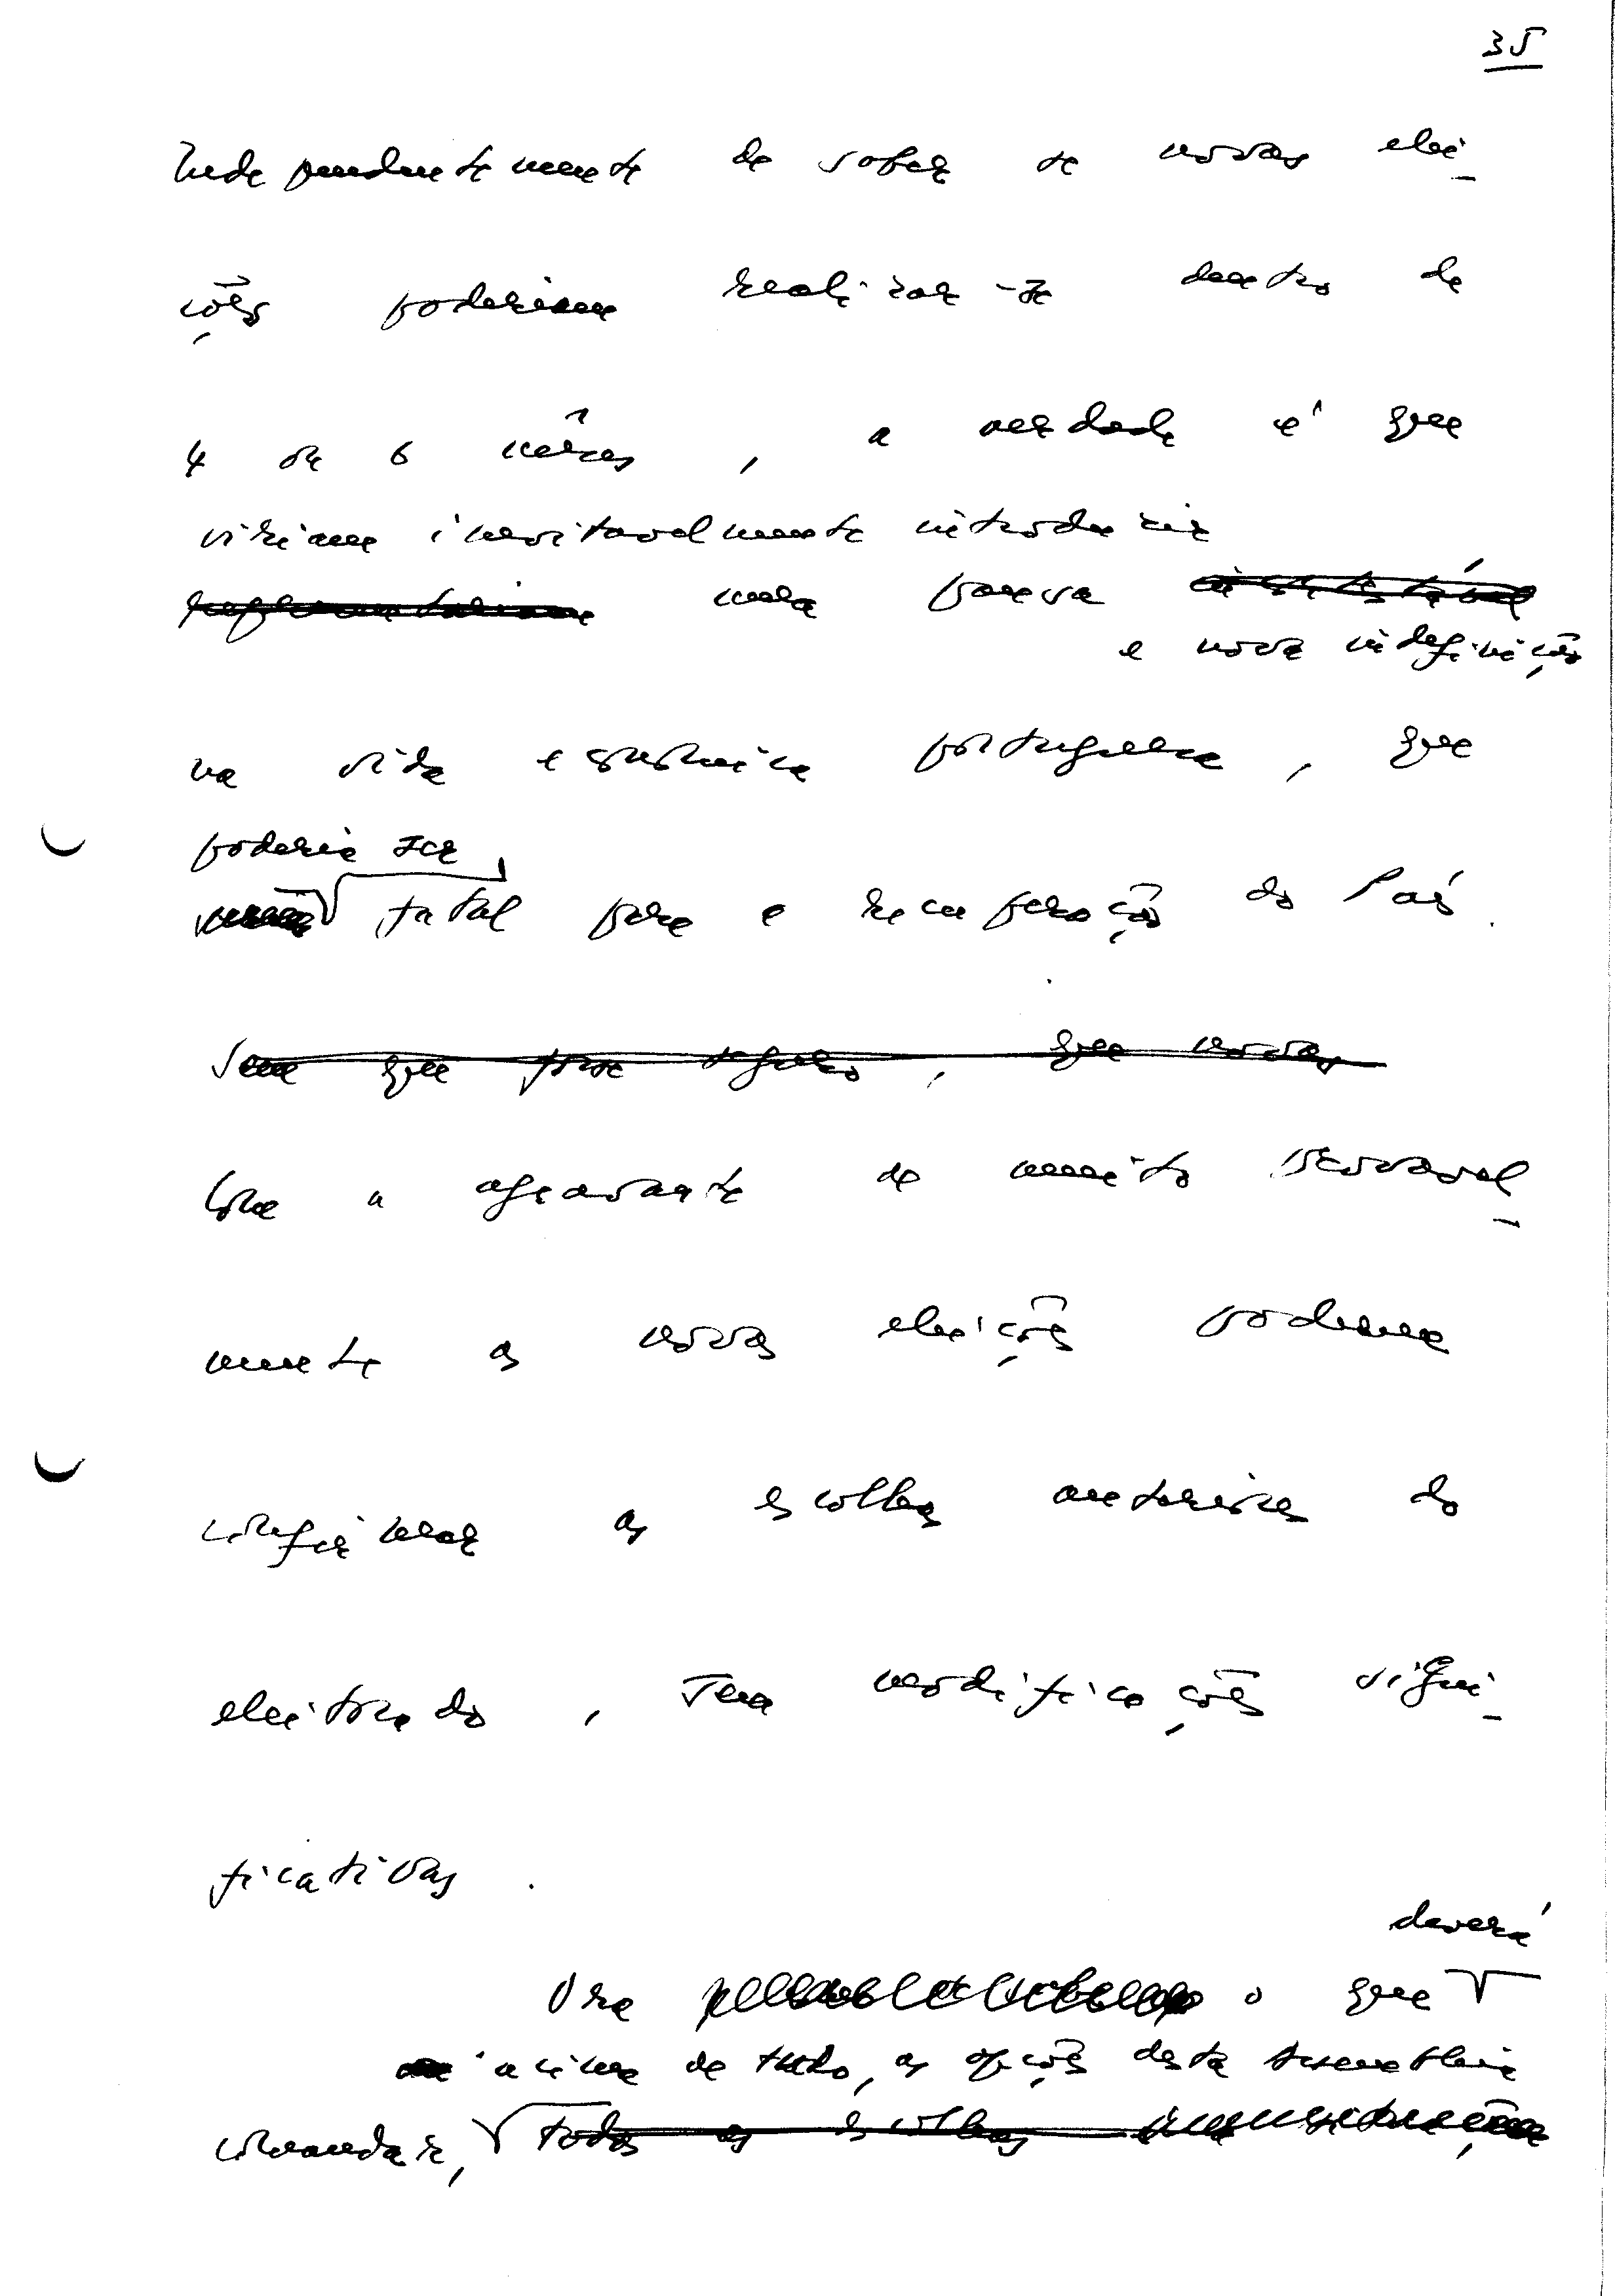 35
Independentemente de saber se novas elei-
ções poderiam realizar-se dentro de
4 ou 6 meses, a verdade é que
viriam inevitavelmente introduzir
uma pausa
e nova indefinição
na vida económica portuguesa, que
poderia ser
fatal para a recuperação do País.
Sem que fosse seguro, que novas
Com a agravante de muito provavel-
mente as novas eleições poderem
confirmar as escolhas anteriores do
eleitorado, sem modificações signi-
ficativas.
deverá
Ora o que
acima de tudo, as opções desta Assembleia
comandar, todas as escolhas